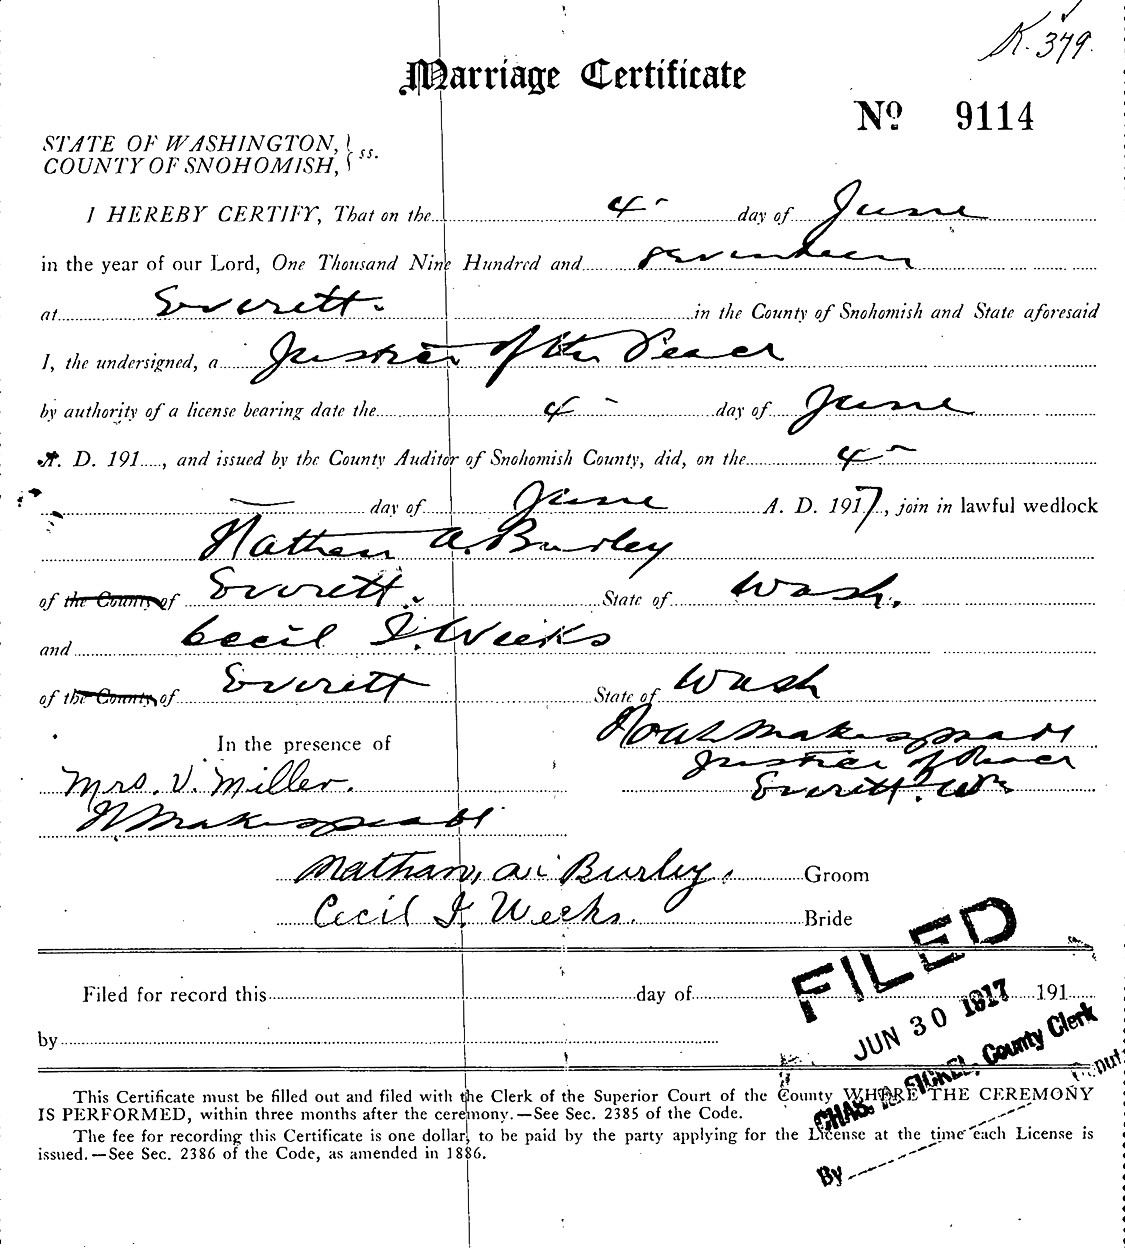 K. 379.
Marriage Certificate
No 9114
STATE OF WASHINGTON, } ss.
COUNTY OF SNOHOMISH, }
I HEREBY CERTIFY, That on the 4 day of June
in the year of our Lord, One Thousand Nine Hundred and seventeen
at Everett. in the County of Snohomish and State aforesaid
I, the undersigned, a Justice of the Peace
by authority of a license bearing date the 4 day of June
A. D. 191, and issued by the County Auditor of Snohomish County, did, on the 4
day of June A. D. 1917, join in lawful wedlock
Nathan A. Burley
of the County of Everett. State of Wash.
and Cecil I. Weeks
of the County of Everett State of Wash
Makespeace
In the presence of Justice of Peace
Mrs. V. Miller. Everett. Wn
N Makespeace
Nathan, A. Burley. Groom
Cecil I. Weeks. Bride
FILED
Filed for record this day of 191
JUN 30 1917
by
County Clerk
This Certificate must be filled out and filed with the Clerk of the Superior Court of the County WHERE THE CEREMONY
IS PERFORMED, within three months after the ceremony.—See Sec. 2385 of the Code.
CHAS. SICKEL,
The fee for recording this Certificate is one dollar, to be paid by the party applying for the License at the time each License is
issued.—See Sec. 2386 of the Code, as amended in 1886.
By